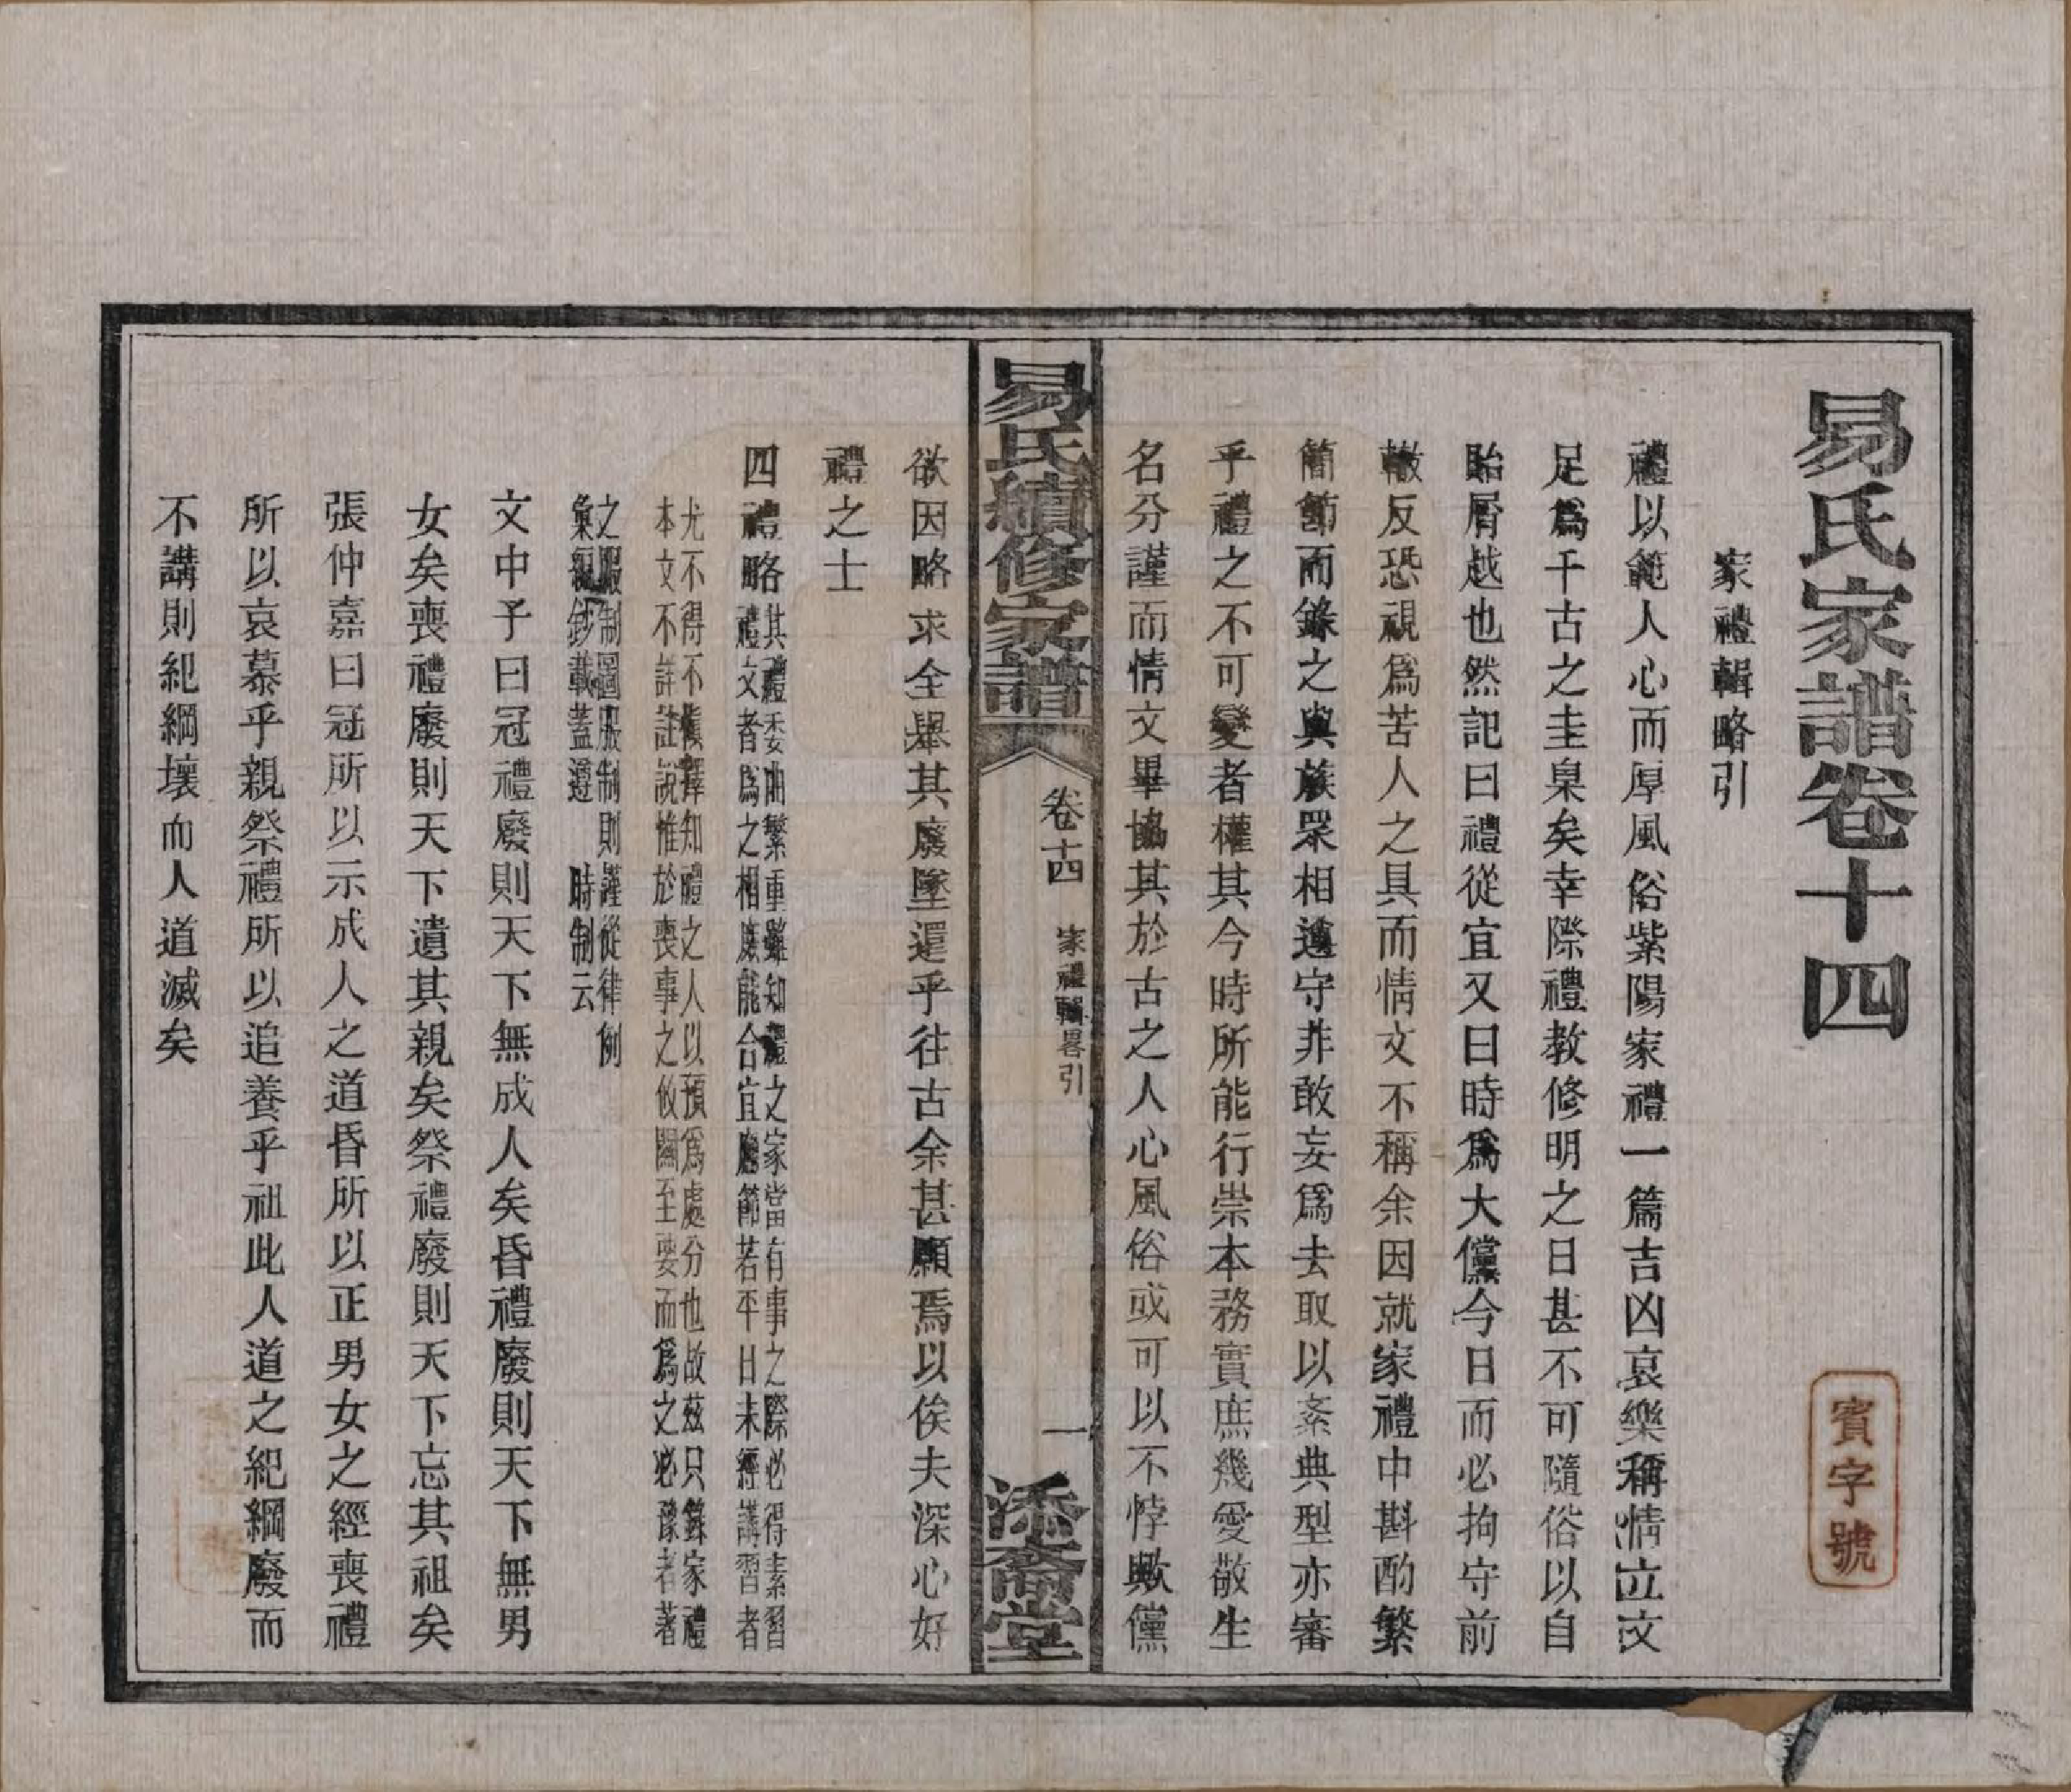 易氏家譜卷十四
賓字號
家禮輯略引
禮以範人心而厚風俗紫陽家禮一篇吉凶哀樂稱情立文
足爲千古之圭臬矣幸際禮教修明之日甚不可隨俗以自
貽屑越也然記曰禮從宜又曰時爲大儻今日而必拘守前
轍反恐視爲苦人之具而情文不稱余因就家禮中斟酌繁
簡節而錄之與族眾相遵守非敢妄爲去取以紊典型亦審
乎禮之不可變者權其今時所能行崇本務實庶幾愛敬生
名分謹而情文畢協其於古之人心風俗或可以不悖歟儻
易氏續修家譜
卷十四
家禮輯畧引
一
添裔堂
欲因略求全舉其廢墜還乎往古余甚願焉以俟夫深心好
禮之士
四禮略
其禮委曲繁重雖知禮之家當有事之際必得素習
禮文者爲之相庶能合宜應節若平日未經講習者
尤不得不愼擇知禮之人以預爲處分也故茲只錄家禮
本文不詳註說惟於喪事之攸關至要而爲之必豫者著
之服制圖服制則謹從律例
彙親鈔載蓋遵時制云
文中子曰冠禮廢則天下無成人矣昏禮廢則天下無男
女矣喪禮廢則天下遺其親矣祭禮廢則天下忘其祖矣
張仲嘉曰冠所以示成人之道昏所以正男女之經喪禮
所以哀慕乎親祭禮所以追養乎祖此人道之紀綱廢而
不講則紀綱壞而人道滅矣